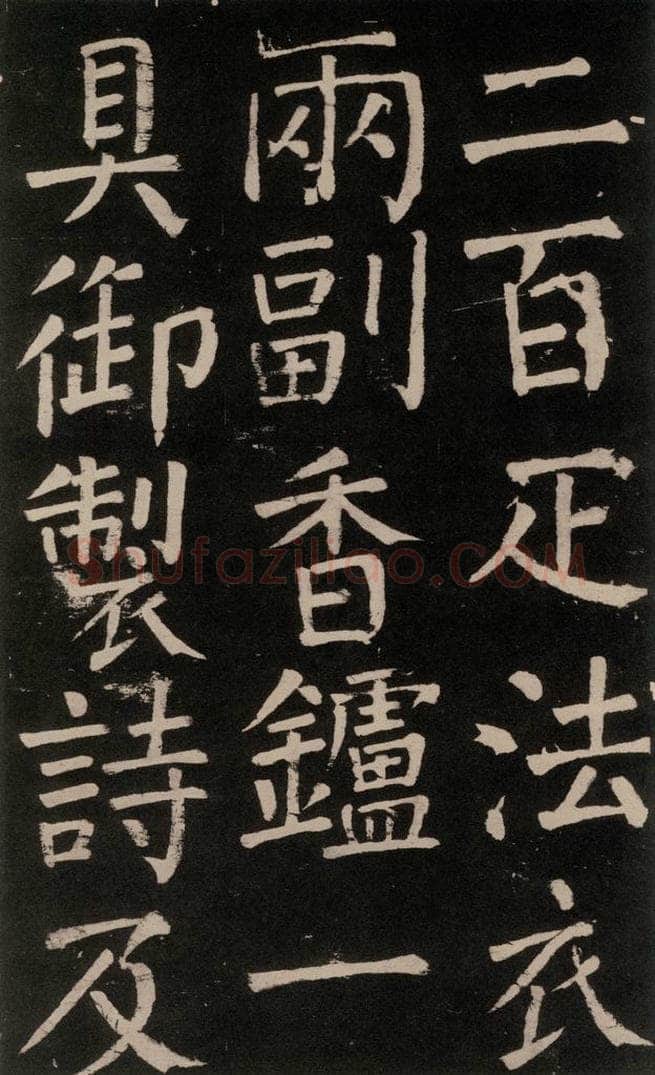 二百疋法衣
兩副香鑪一
具御製詩及
Shufaziliao.COM